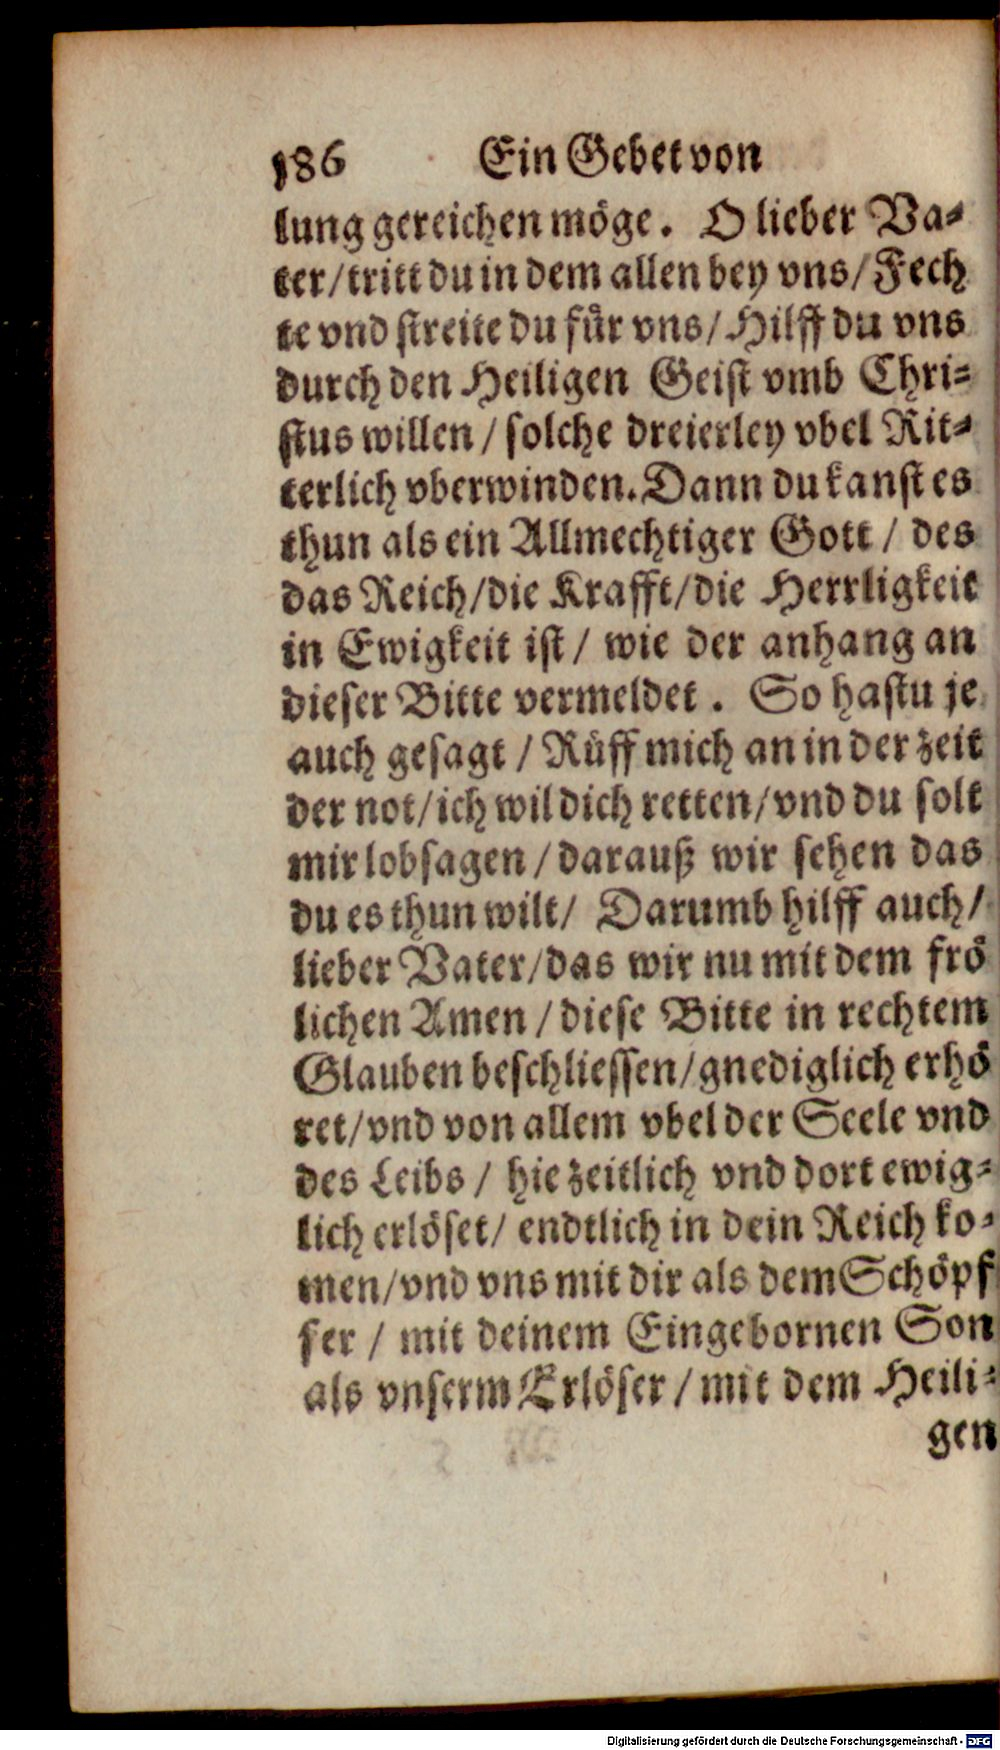 186 Ein Gebet von
lung gereichen möge. O lieber Va-
ter/tritt du in dem allen bey vns/Fech
te vnd streite du für vns/Hilff du vns
durch den Heiligen Geist vmb Chri-
stus willen/solche dreierley vbel Rit-
terlich vberwinden. Dann du kanst es
thun als ein Allmechtiger Gott/des
das Reich/die Krafft/die Herrligkeit
in Ewigkeit ist/wie der anhang an
dieser Bitte vermeldet. So hastu je
auch gesagt/Rüff mich an in der zeit
der not/ich wil dich retten/vnd du solt
mir lobsagen/darauß wir sehen das
du es thun wilt/Darumb hilff auch/
lieber Vater/das wir nu mit dem frö
lichen Amen/diese Bitte in rechtem
Glauben beschliessen/gnediglich erhö
ret/vnd von allem vbel der Seele vnd
des Leibs/hie zeitlich vnd dort ewig-
lich erlöset/endtlich in dein Reich ko-
men/vnd vns mit dir als dem Schöpf
fer/mit deinem Eingebornen Son
als vnserm Erlöser/mit dem Heili-
gen
Digitalisierung gefördert durch die Deutsche Forschungsgemeinschaft - DFG